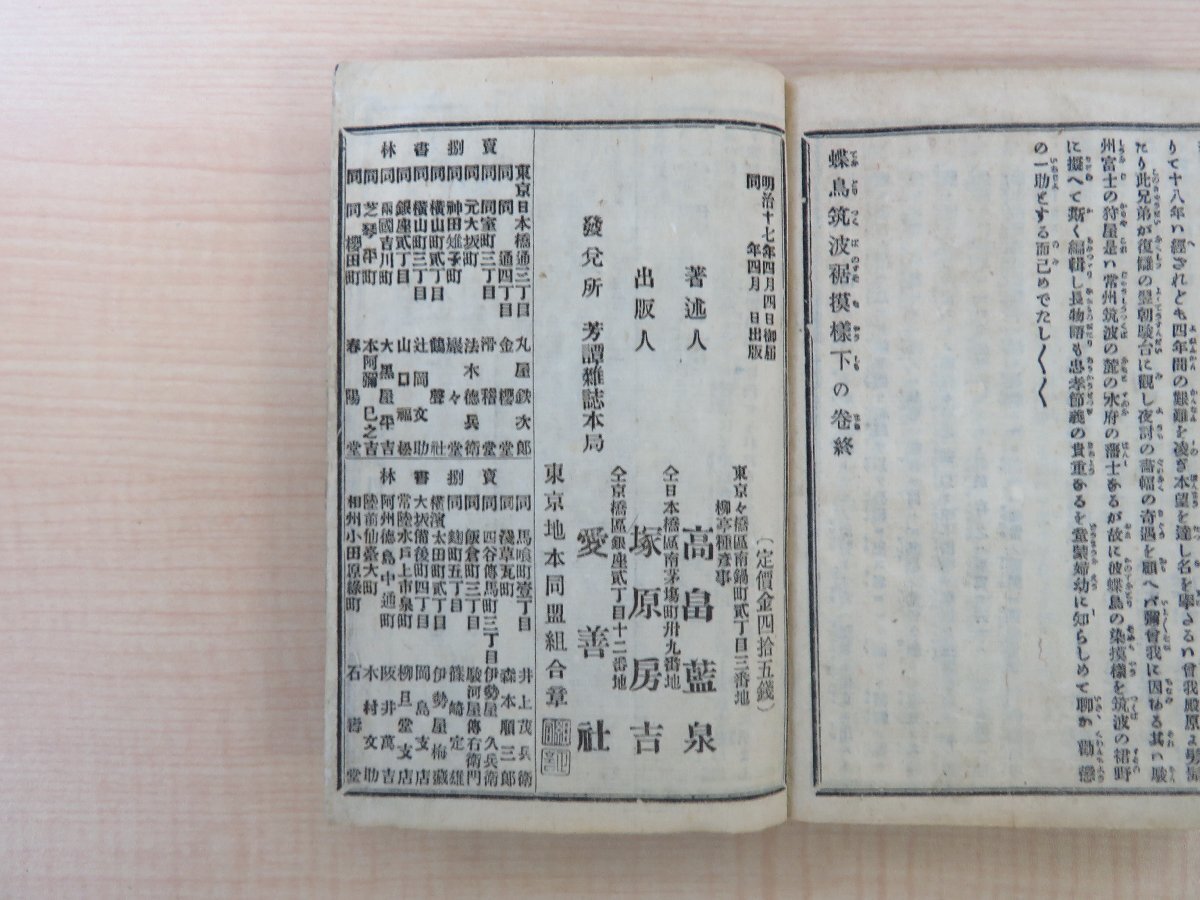 りて十八年い經されども四年間の艱難を凌ぎ本望を達し名を擧さるい曾我殿原
たり此兄弟が復讎の皇朝駿台に觀し夜討の畫幅の奇遇を顧へバ彌曾我に因ゐる其い駿
州富士の狩屋是い常州筑波の麓の水府の藩士なるが故に彼蝶鳥の染摸樣を筑波の裙野
に擬へて斯く編輯し長物語も忠孝節義の貴重なるを童蒙婦幼に知らしめて聊か勸懲
の一助とする而已めでたし〱〱
蝶鳥筑波裾摸樣下の卷終
明治十七年四月四日御届
同年四月 日出版
(定價金四拾五錢)
著述人
東京々橋區南鍋町貳丁目三番地
柳亭種彦事
高畠藍泉
出版人
仝日本橋區南茅塲町卅九番地
塚原房吉
發兌所 芳譚雜誌本局
仝京橋區銀座貳丁目十二番地
愛善社
東京地本同盟組合章
賣捌書林
東京日本橋通三丁目 丸屋鉄次郎
同 同 通四丁目 金櫻堂
同 同室町三丁目 滑稽堂
同 元大坂町 法木德兵衛
同 神田雉子町 巖々堂
同 橫山町貳丁目 鶴聲社
同 橫山町三丁目 辻岡文助
同 銀座貳丁目 山口福松
同 兩國吉川町 大黑屋平吉
同 芝琴平町 本阿彌巳之吉
同 同櫻田町 春陽堂
賣捌書林
同 馬喰町壹丁目 井上茂兵衛
同 淺草瓦町 森本順三郎
同 四谷傳馬町三丁目 伊勢屋久兵衛
同 飯倉町三丁目 駿河屋傳右衛門
同 麹町五丁目 篠崎定雄
橫濱太田町貳丁目 伊勢屋梅藏
大坂備後町四丁目 岡島支店
常陸水戸上市泉町 柳旦堂支店
阿州德島中通町 阪井萬吉
陸前仙臺大町 木村文助
相州小田原綠町 石